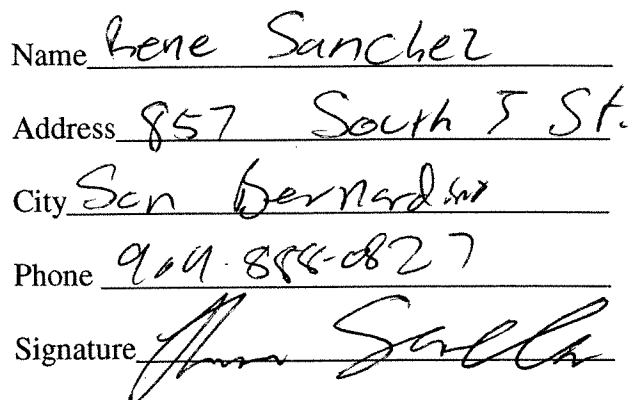 Name Rene Sanchez
Address 857 South J St.
City San Bernardino
Phone 909-888-0827
Signature